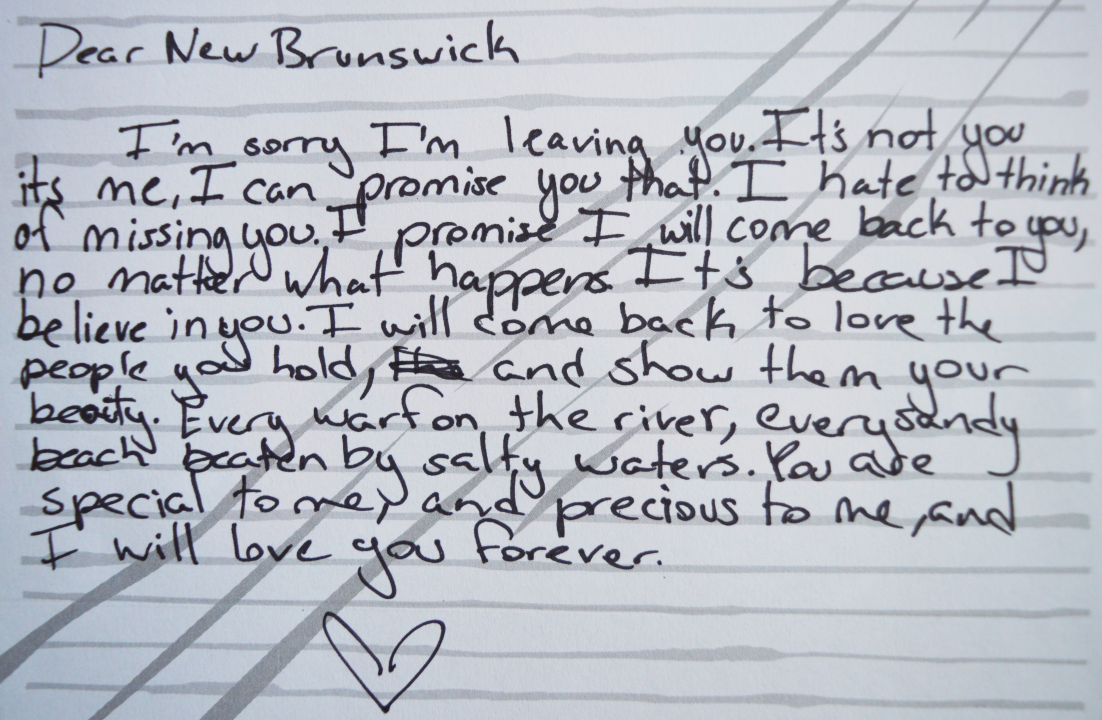 Dear New Brunswick
I'm sorry I'm leaving you. It's not you
its me, I can promise you that. I hate to think
of missing you. I promise I will come back to you,
no matter what happens. It's because I
believe in you. I will come back to love the
people you hold, and show them your
beauty. Every warf on the river, every sandy
beach beaten by salty waters. You are
special to me, and precious to me, and
I will love you forever.